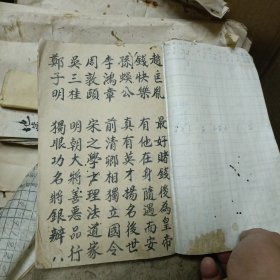 趙匡胤 最好賭錢後為皇帝
錢快樂 有他在身隨遇而安
孫公 真有英才揚名後世
李鴻章 前清卿相獨立國令
周敦頤 宋之學士理法道家
吳三桂 明朝大將善惡品行
鄭子明 獨眼功名將銀辦八